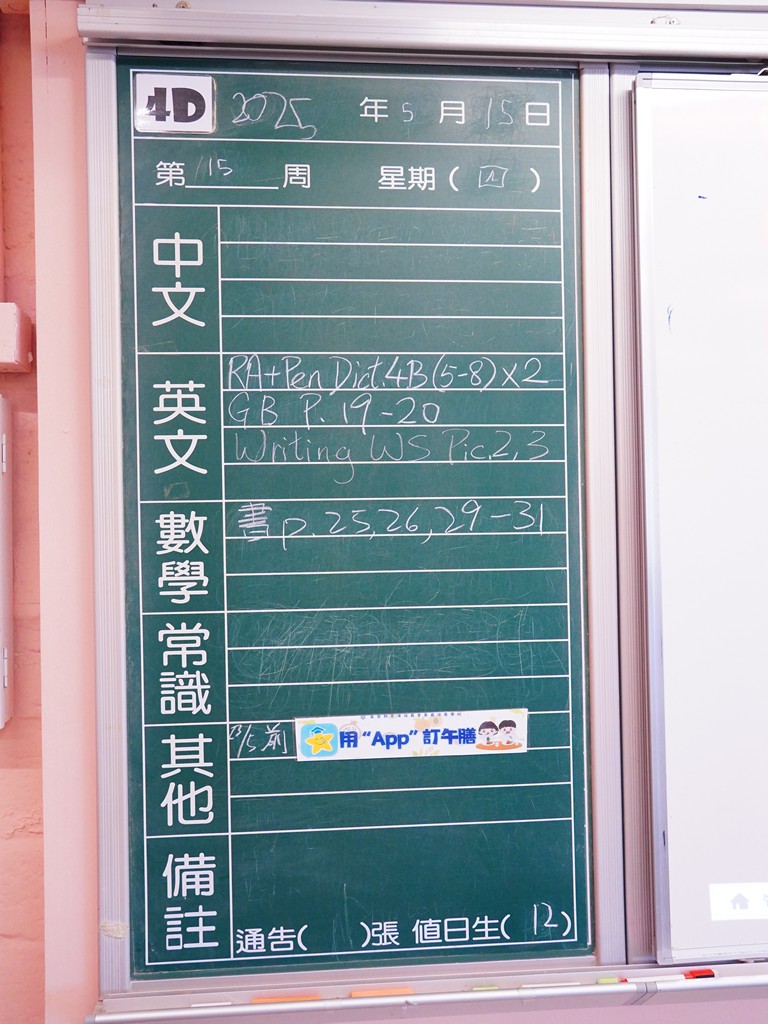 4D 2025 年 5 月 15 日
第 15 周 星期( 四 )
中文
英文
RA+Pen Dict.4B(5-8)x2
GB P. 19-20
Writing WS Pic.2,3
數學
書p.25,26,29-31
常識
其他
/5前 用“App”訂午膳
備註
通告( )張 值日生( 12 )